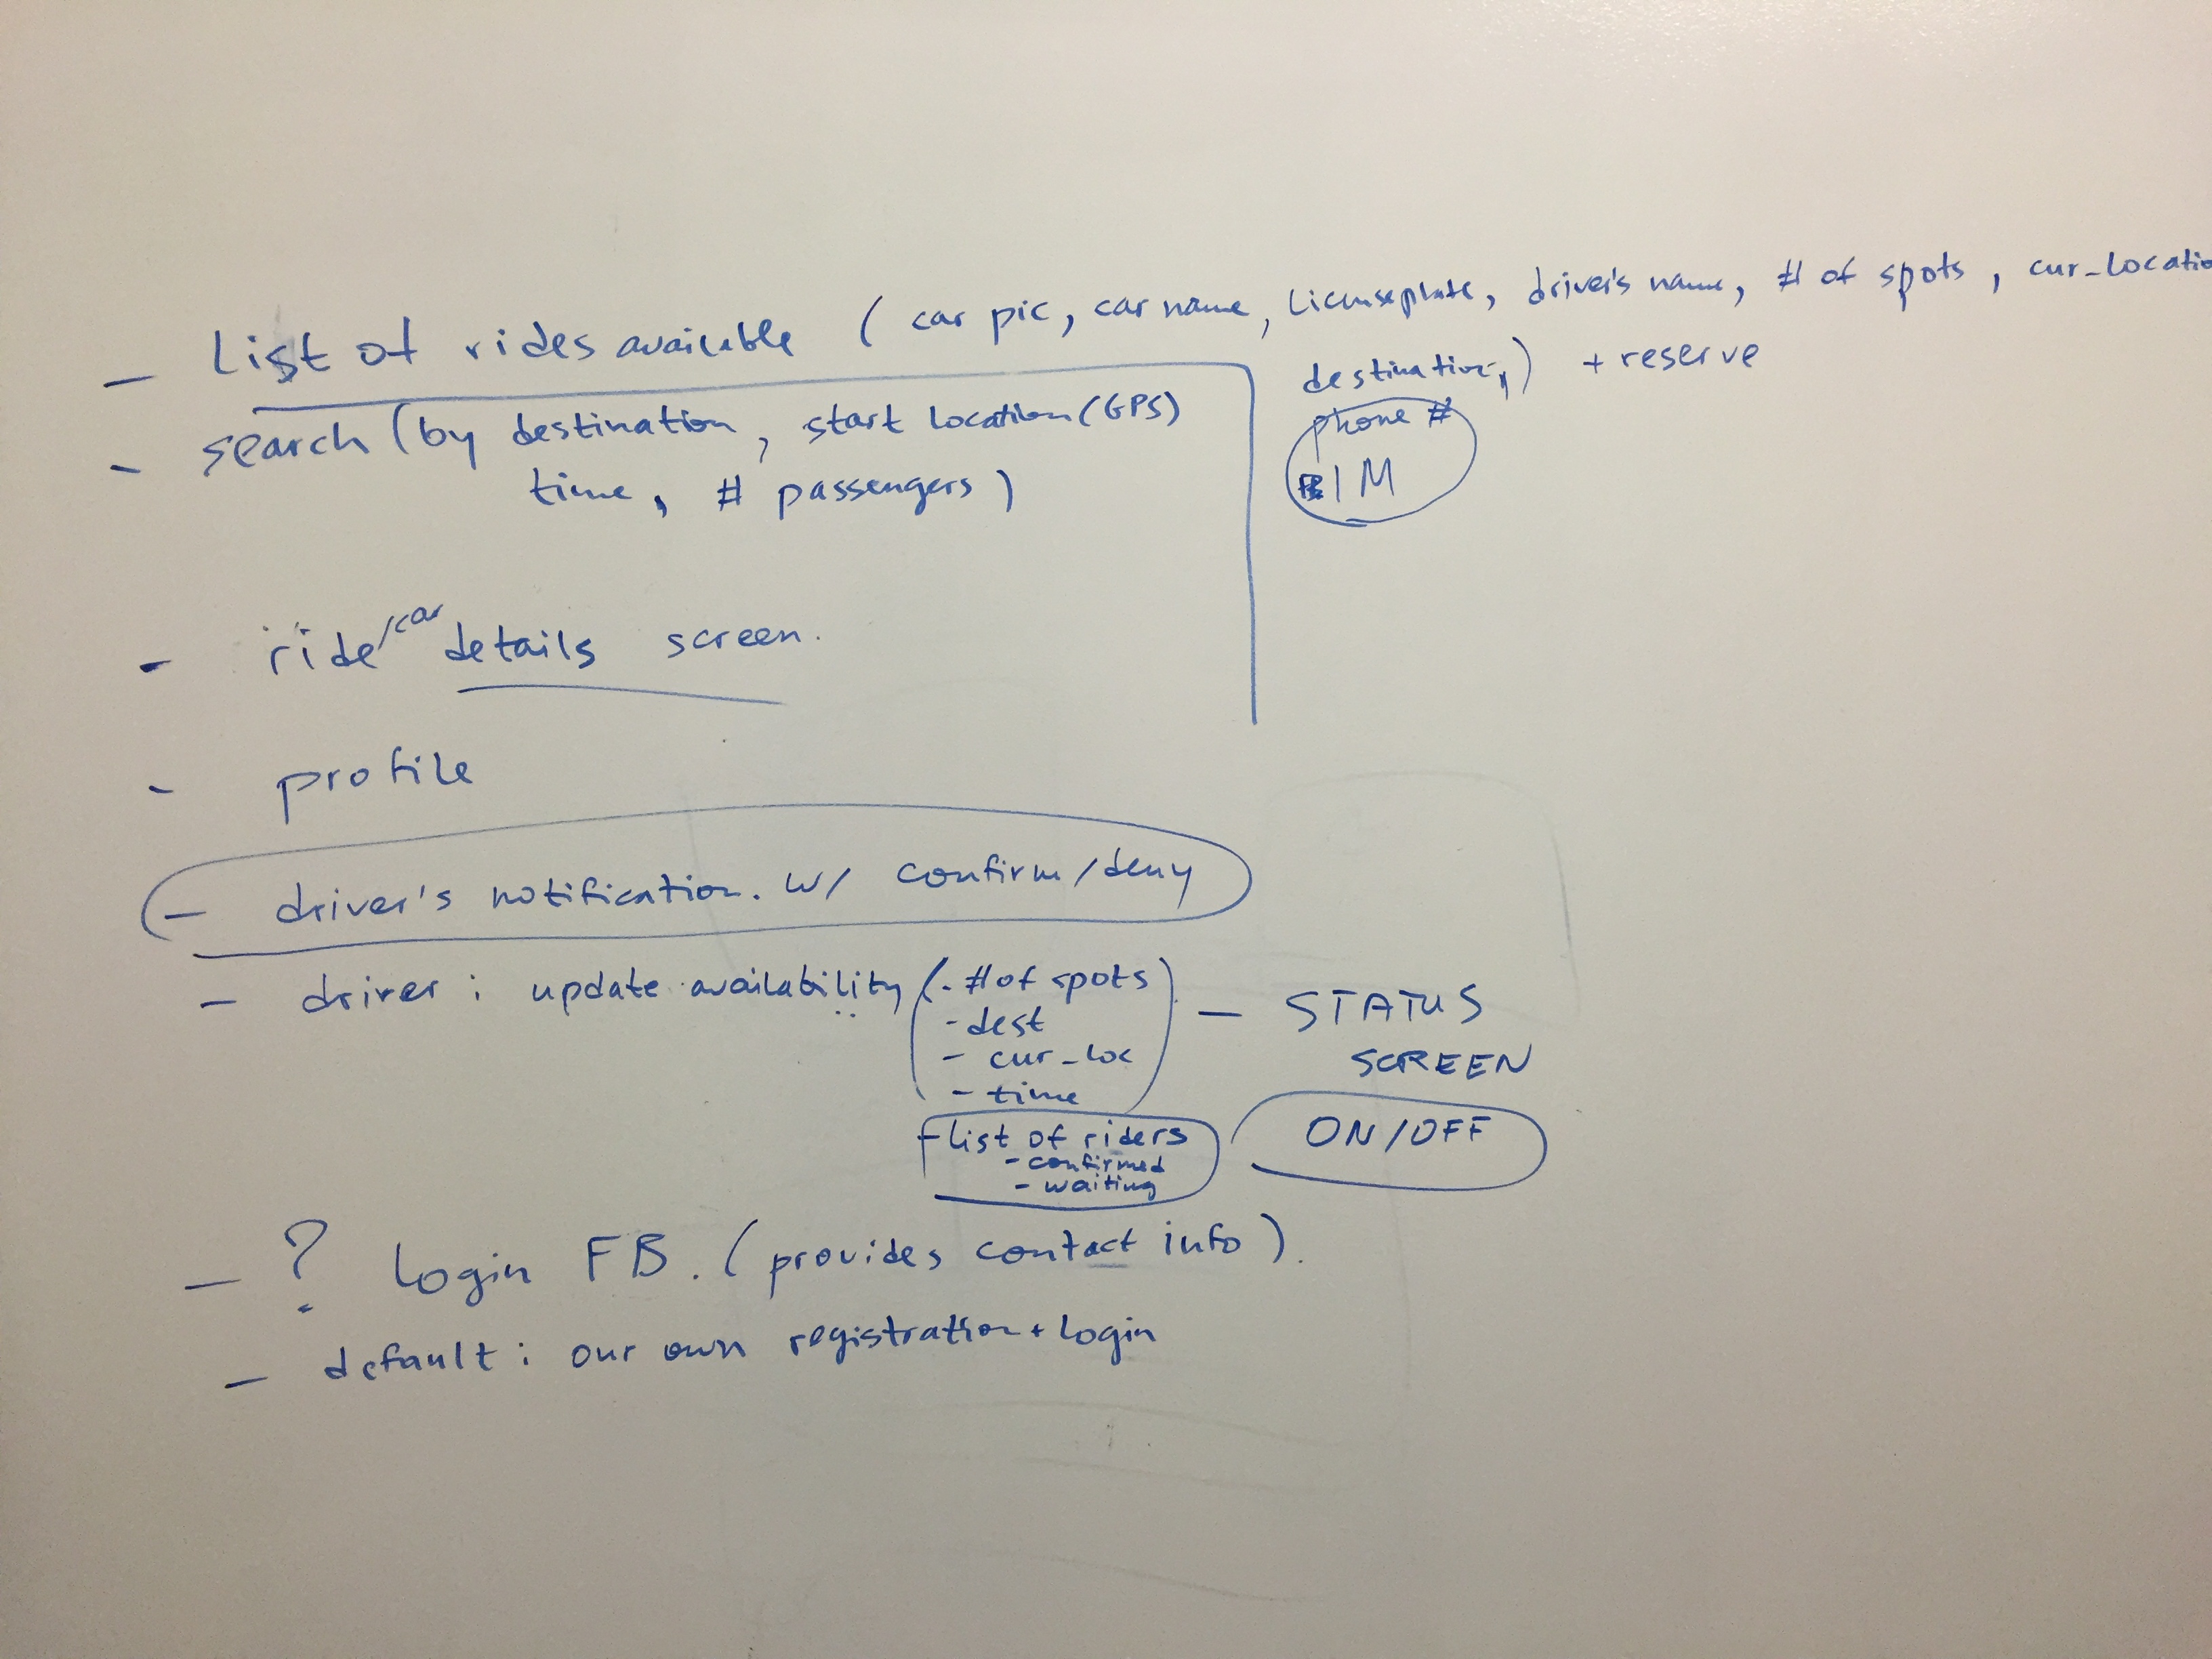 - List of rides available (car pic, car name, licenseplate, driver's name, # of spots, cur_locatio
destination,) + reserve
phone #
IM
- search (by destination, start location (GPS)
time, # passengers)
- ride/car details screen.
- profile
- driver's notification. w/ confirm/deny
- driver: update availability (- # of spots
- dest
- cur_loc
- time
- STATUS
SCREEN
- list of riders
- confirmed
- waiting
ON/OFF
- ? Login FB. (provides contact info).
- default: our own registration + login